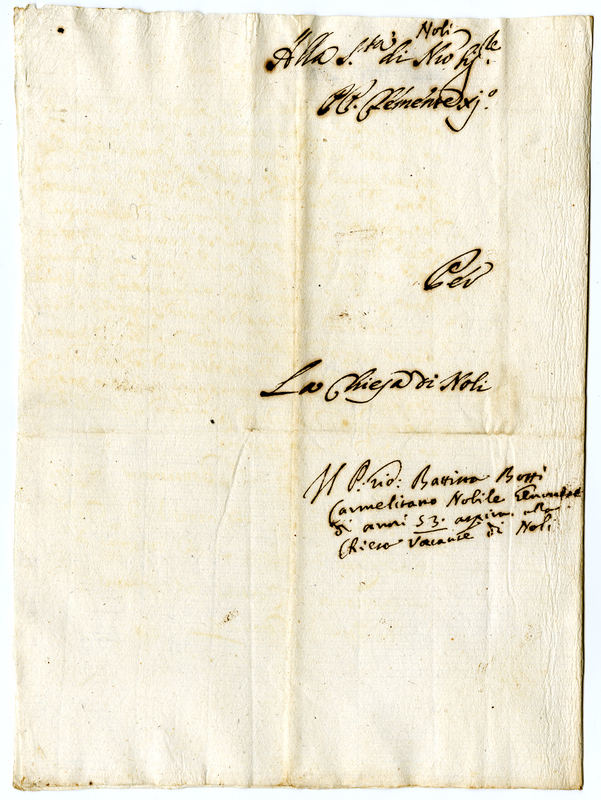 Noli
Alla S.tà di Nro Sig.re
PP. Clemente xj.o
Per
La Chiesa di Noli
Il P. Gio: Battista Botti
Carmelitano Nobile
di anni 53. aspira alla
Chiesa Vacante di Noli